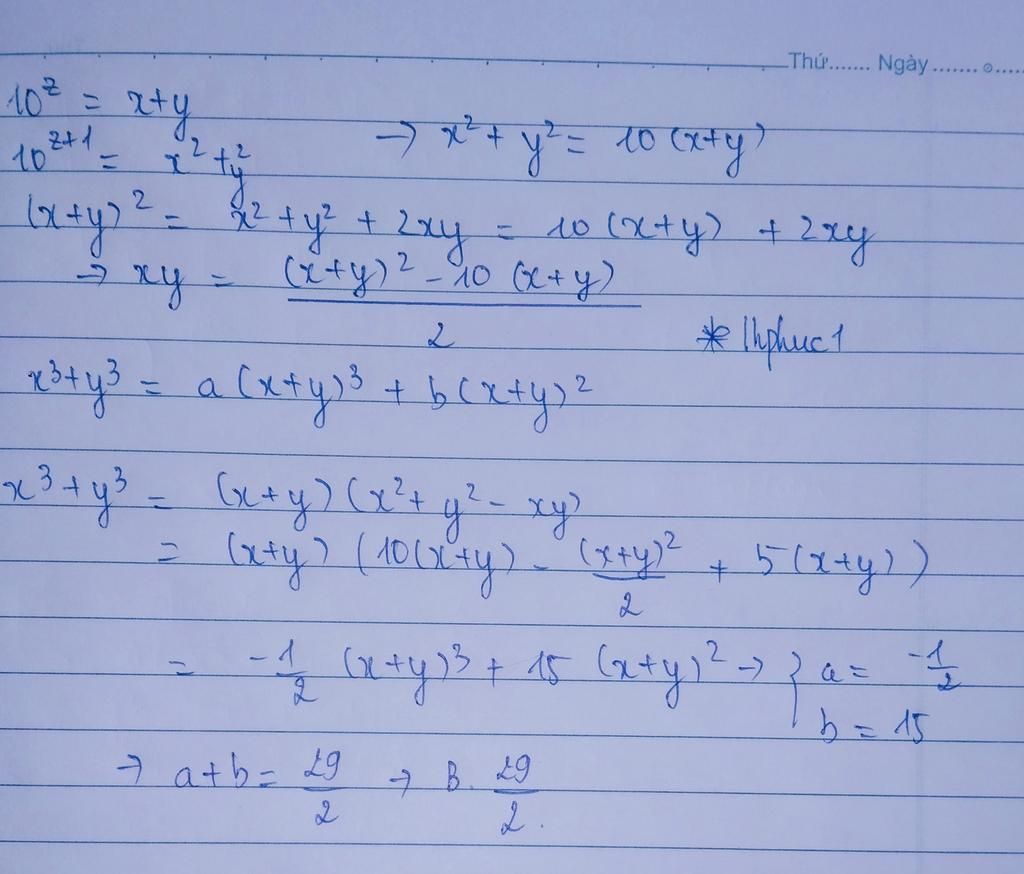 Thứ....... Ngày ...............
10^z = x+y
10^{z+1} = x² + y² → x² + y² = 10(x+y)
(x+y)² = x² + y² + 2xy = 10(x+y) + 2xy
→ xy = \frac{(x+y)² - 10(x+y)}{2}
* lhphuc1
x³+y³ = a(x+y)³ + b(x+y)²
x³+y³ = (x+y)(x²+y²-xy)
= (x+y)(10(x+y) - \frac{(x+y)²}{2} + 5(x+y))
= -\frac{1}{2}(x+y)³ + 15(x+y)² → { a = -\frac{1}{2}
b = 15
→ a+b = \frac{29}{2} → B. \frac{29}{2}.